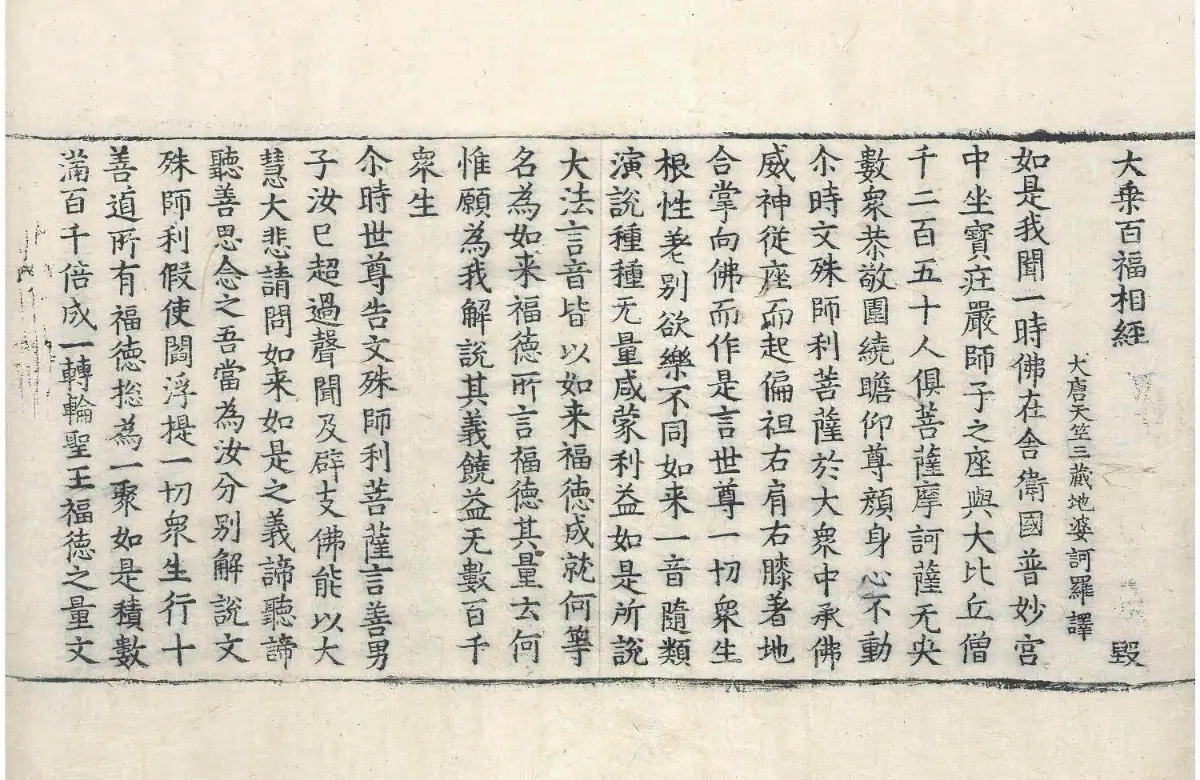 大乗百福相経 毀
大唐天竺三蔵地婆訶羅譯
如是我聞一時佛在舎衛國普妙宮
中坐寳疘嚴師子之座與大比丘僧
千二百五十人俱菩薩摩訶薩无央
數衆恭敬圍繞瞻仰尊顔身心不動
尒時文殊師利菩薩於大衆中承佛
威神従座而起偏袒右肩右膝著地
合掌向佛而作是言世尊一切衆生
根性差別欲樂不同如来一音隨類
演說種種无量咸蒙利益如是所說
大法言音皆以如来福徳成就何等
名為如来福徳所言福徳其量云何
惟願為我解說其義饒益无數百千
衆生
尒時世尊告文殊師利菩薩言善男
子汝已超過聲聞及辟支佛能以大
慧大悲請問如来如是之義諦聽諦
聽善思念之吾當為汝分別解說文
殊師利假使閻浮提一切衆生行十
善道所有福徳捴為一聚如是積數
滿百千倍成一轉輪聖王福徳之量文